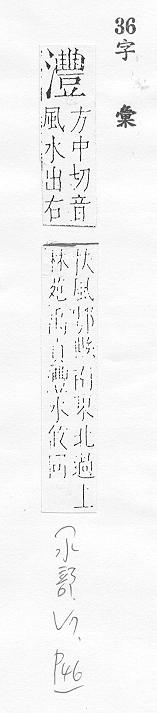 36字彙
灃
方中切音
風水出右
扶風鄠縣南聚北過上
林苑禹貢灃水攸同
水部. V7.
P46